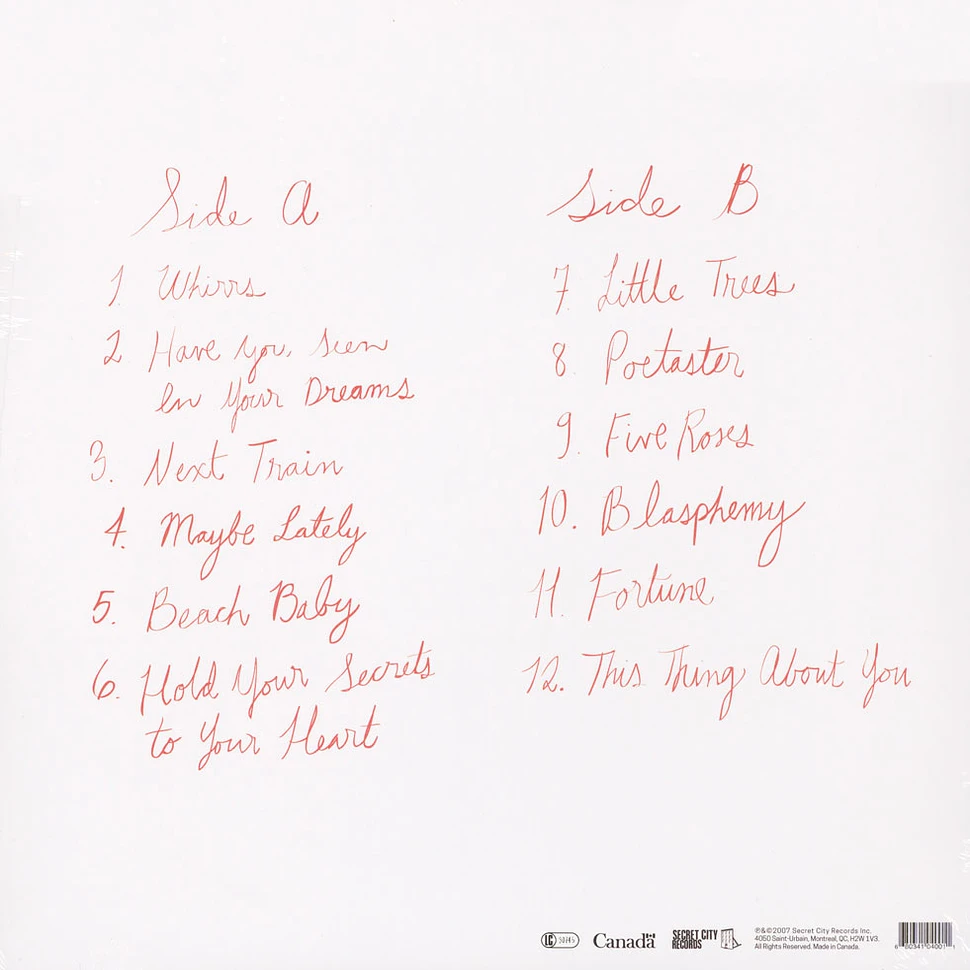 Side A
1 Whirrs
2 Have You Seen
In Your Dreams
3. Next Train
4. Maybe Lately
5. Beach Baby
6. Hold Your Secrets
to Your Heart
Side B
7. Little Trees
8. Poetaster
9. Five Roses
10. Blasphemy
11. Fortune
12. This Thing About You
LC
Canada
SECRET CITY
RECORDS
℗&©2007 Secret City Records Inc.
4050 Saint-Urbain, Montreal, QC, H2W 1V3.
All Rights Reserved. Made in Canada.
6 80341 04001 1